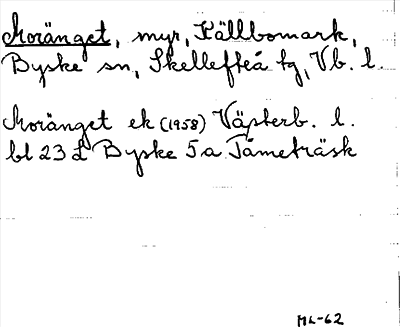 Moränget, myr, Källbomark,
Byske sn, Skellefteå tg, Vb. l.
Moränget ek (1958) Västerb. l.
bl 23 L Byske 5a Tåmeträsk
ML-62